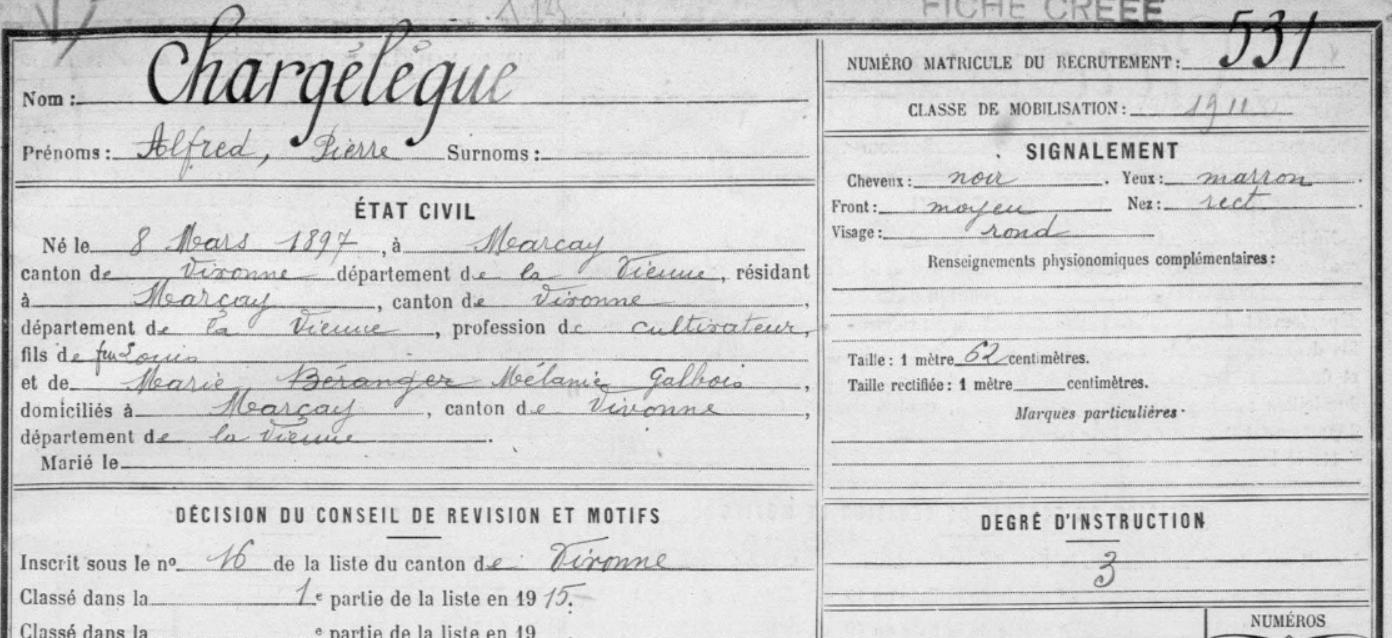 FICHE CRÉÉE
Nom : Chargélègue
Prénoms : Alfred, Pierre Surnoms :
ÉTAT CIVIL
Né le 8 Mars 1897, à Marcay
canton de Vivonne département de la Vienne, résidant
à Marçay, canton de Vivonne,
département de la Vienne, profession de cultivateur,
fils de feu Louis
et de Marie Béranger Mélanie Galbois,
domiciliés à Marçay, canton de Vivonne,
département de la Vienne.
Marié le
DÉCISION DU CONSEIL DE REVISION ET MOTIFS
Inscrit sous le nº 16 de la liste du canton de Vivonne
Classé dans la 1e partie de la liste en 1915.
Classé dans la e partie de la liste en 19
NUMÉRO MATRICULE DU RECRUTEMENT : 531
CLASSE DE MOBILISATION : 1911
SIGNALEMENT
Cheveux : noir. Yeux : marron.
Front : moyen Nez : rect.
Visage : rond
Renseignements physionomiques complémentaires :
Taille : 1 mètre 62 centimètres.
Taille rectifiée : 1 mètre centimètres.
Marques particulières.
DEGRÉ D'INSTRUCTION
3
NUMÉROS